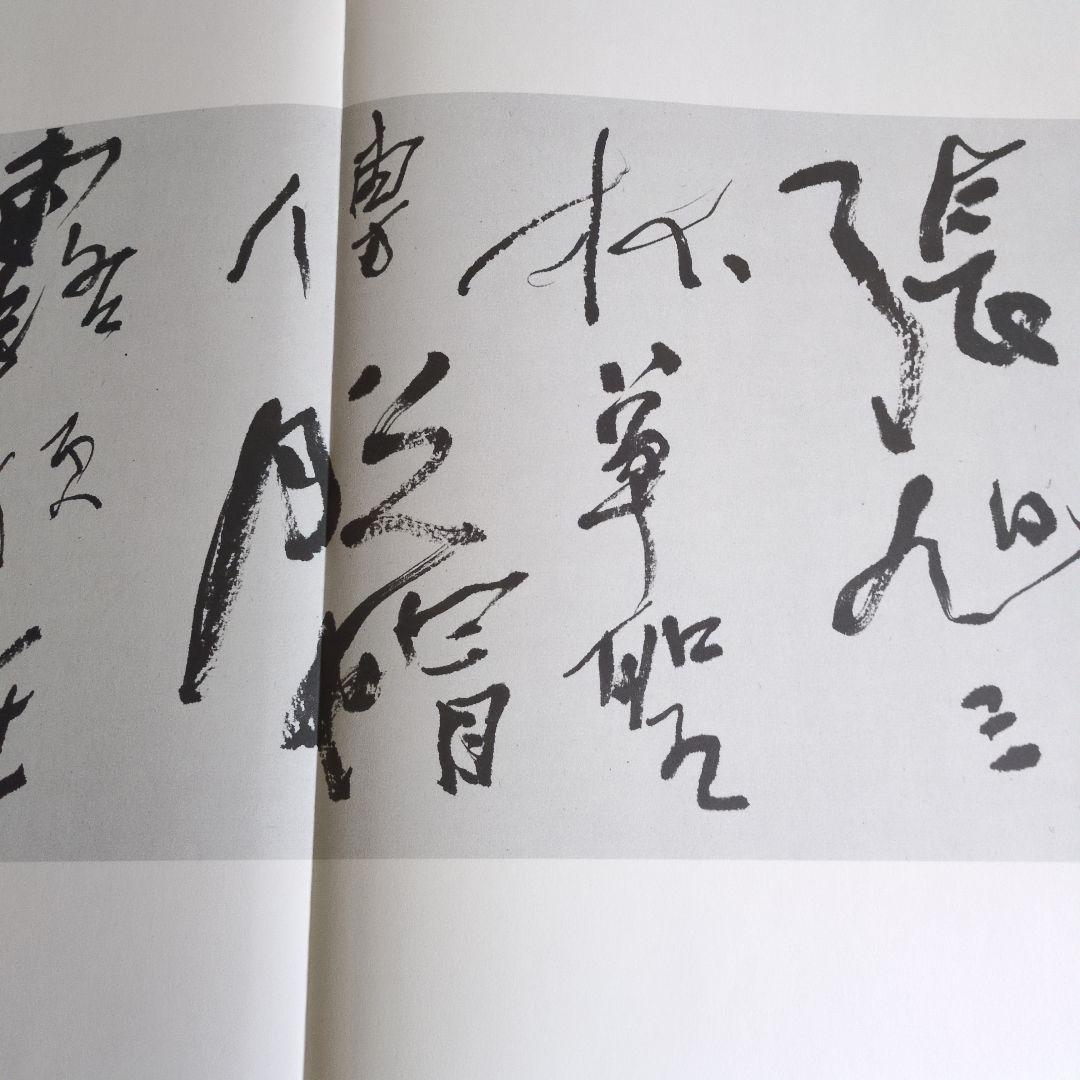 張旭三
杯草聖
傳脫帽
露頂